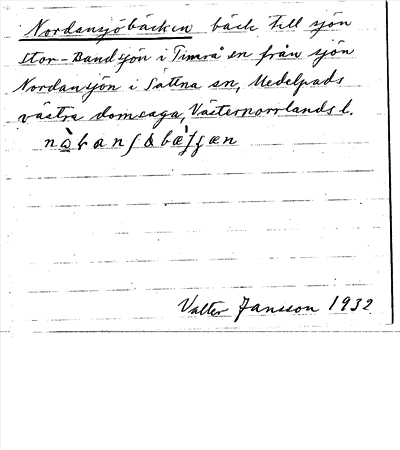 Nordansjöbäcken bäck till sjön
Stor-Bandsjön i Timrå sn från sjön
Nordansjön i Sättna sn, Medelpads
västra domsaga, Västernorrlands l.
Valter Jansson 1932